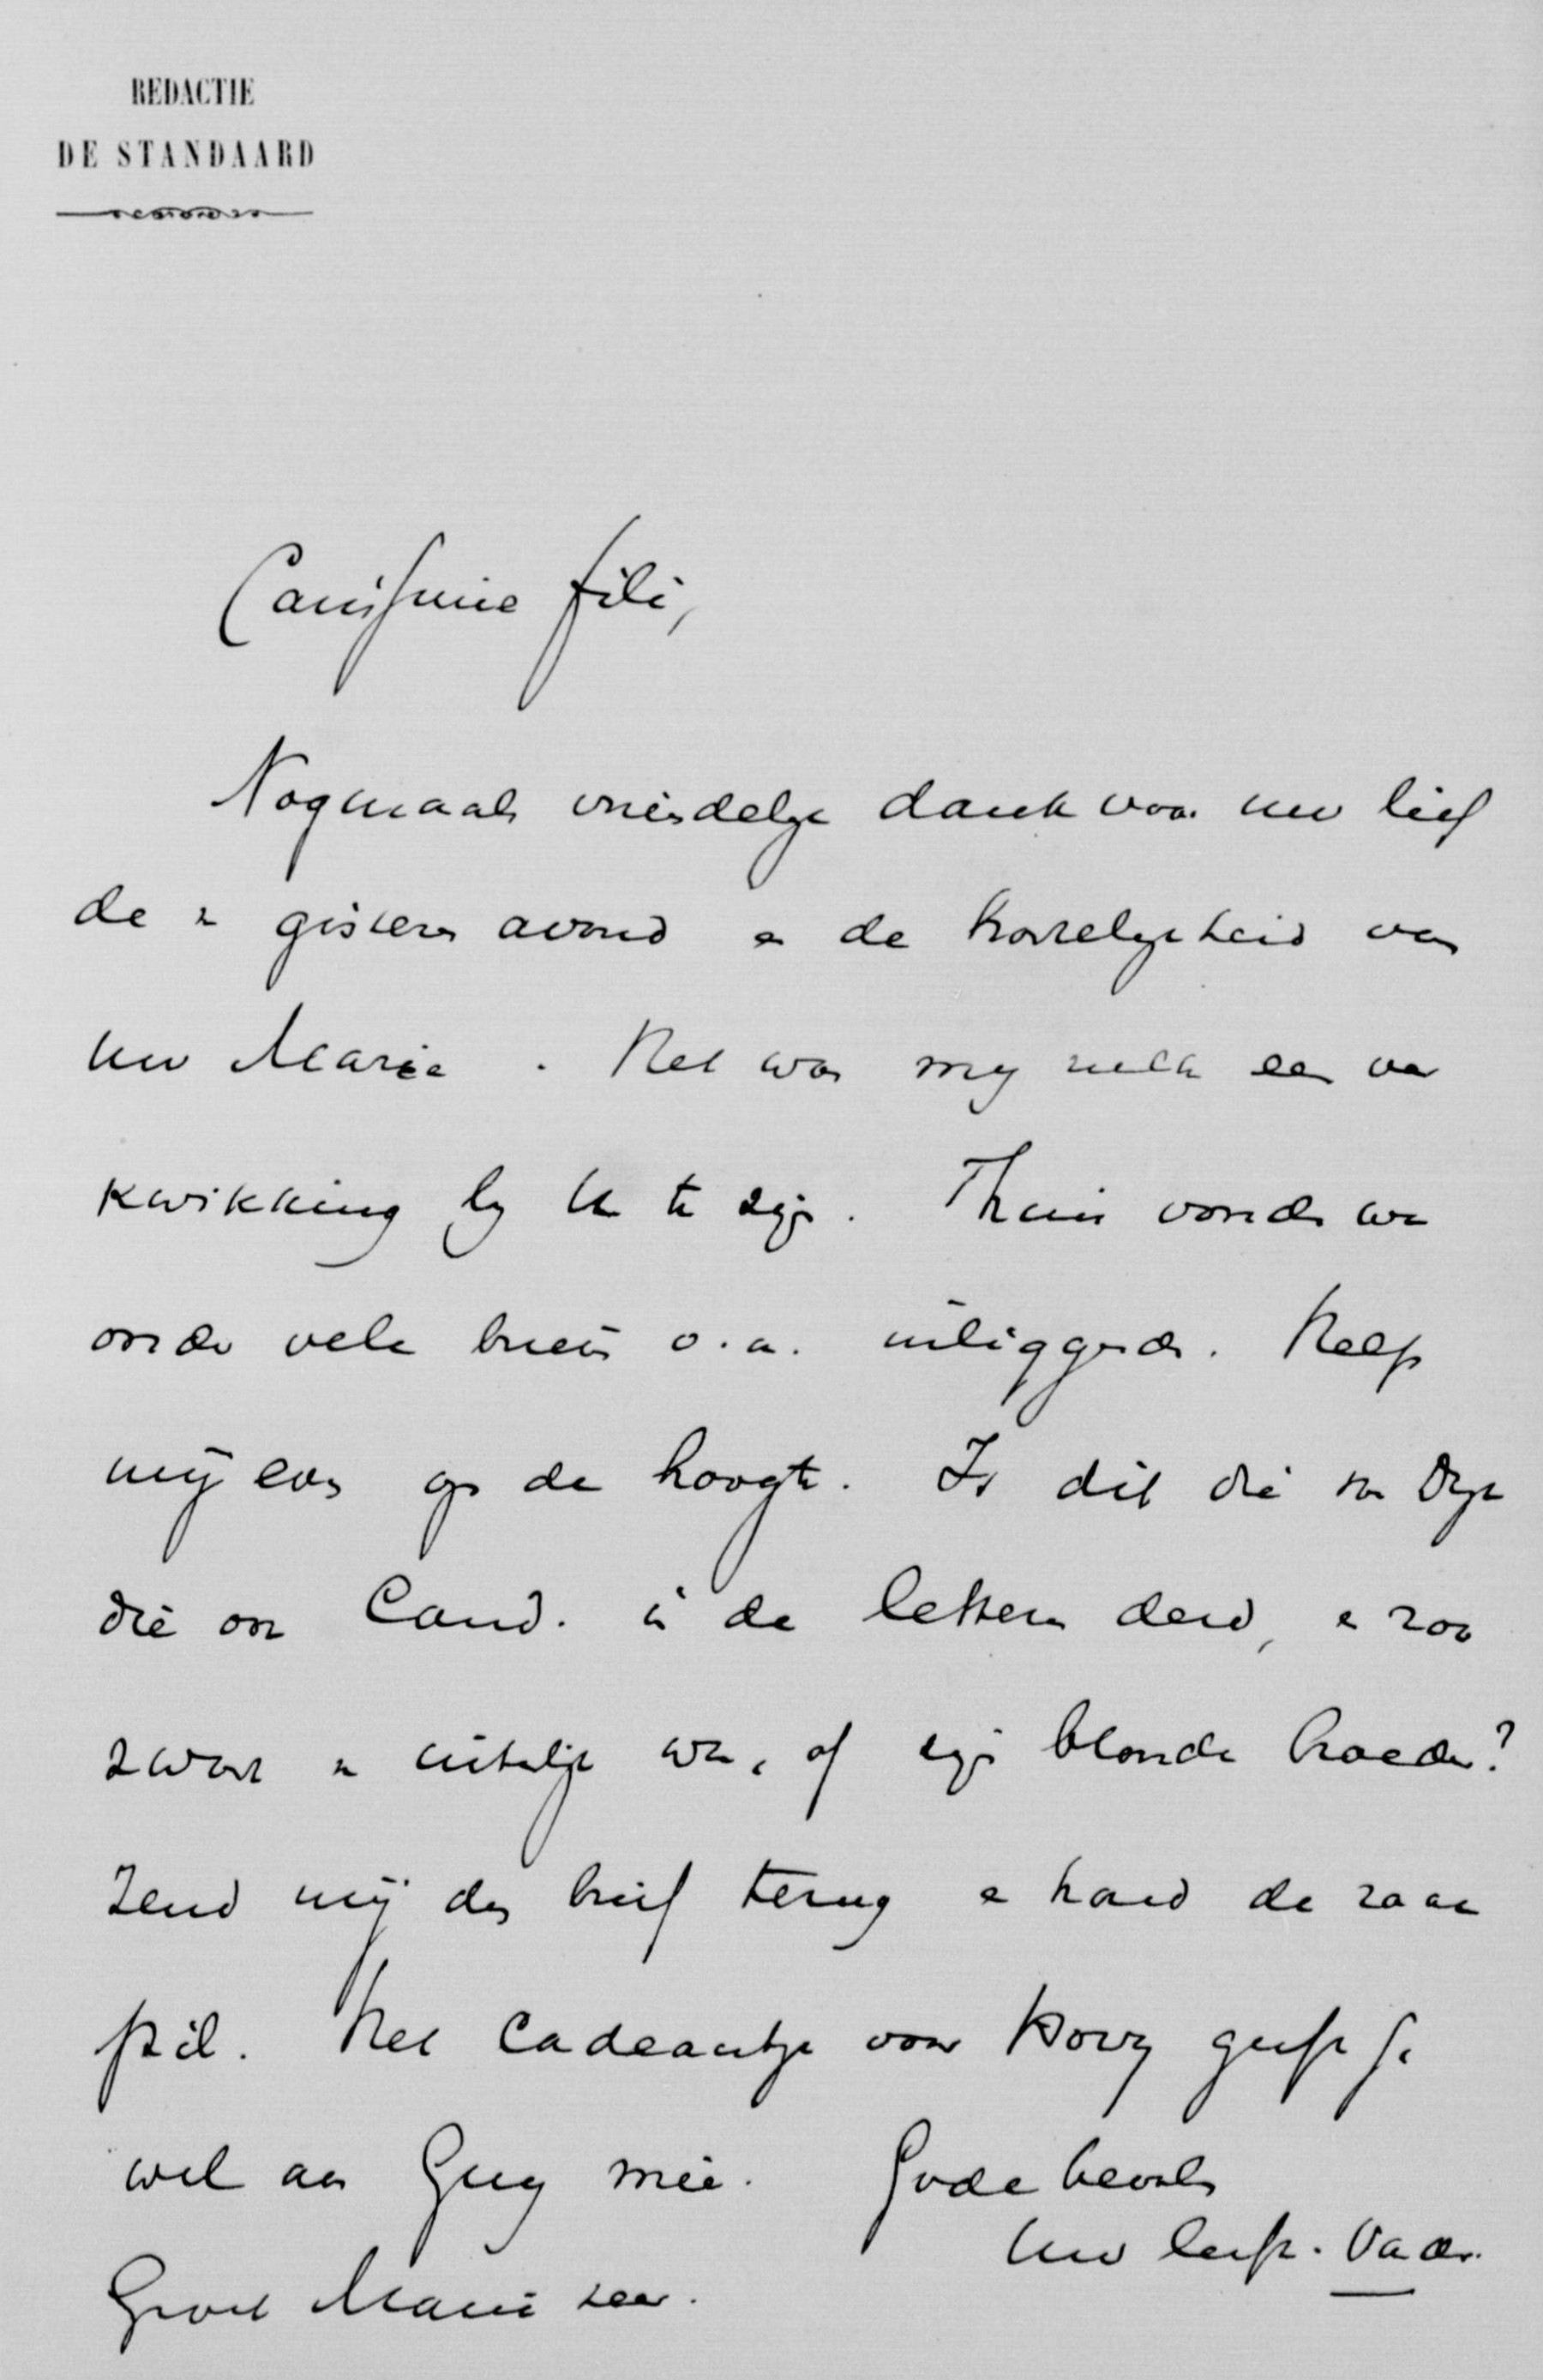 REDACTIE
DE STANDAARD
Carissime fili,
Nogmaals vriendelijke dank voor uw lief
de v gisteren avond en de hartelijkheid van
uw Marie. Het was mij zulk een ver
kwikking bij U te zijn. Thuis vonden we
onder vele brieven o.a. inliggende. Help
mij eens op de hoogte. Is dit die van Dijk
die ons Cand. in de letteren deed, en zoo
zwart en uiterlijk was, of zijn blonde broeder?
Zend mij den brief terug en houd de zaak
stil. Het cadeautje voor geeft ge
wel aan Guy mee. Gode bevolen
Uw liefh. Vader.
Groet Marie zeer.